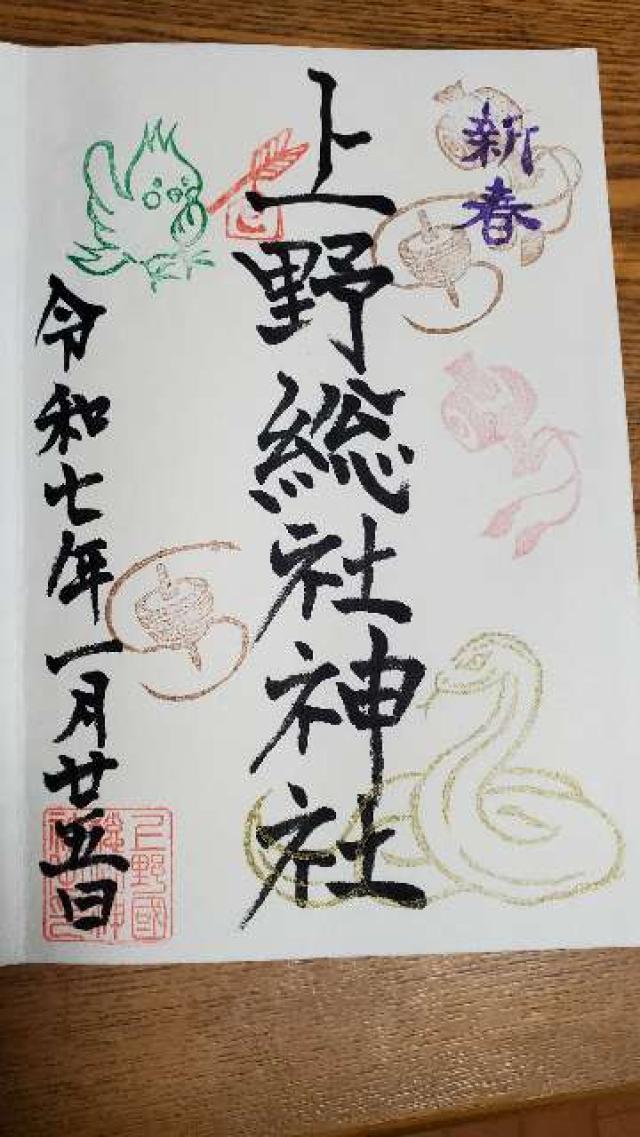 新春
上野総社神社
令和七年一月廿五日